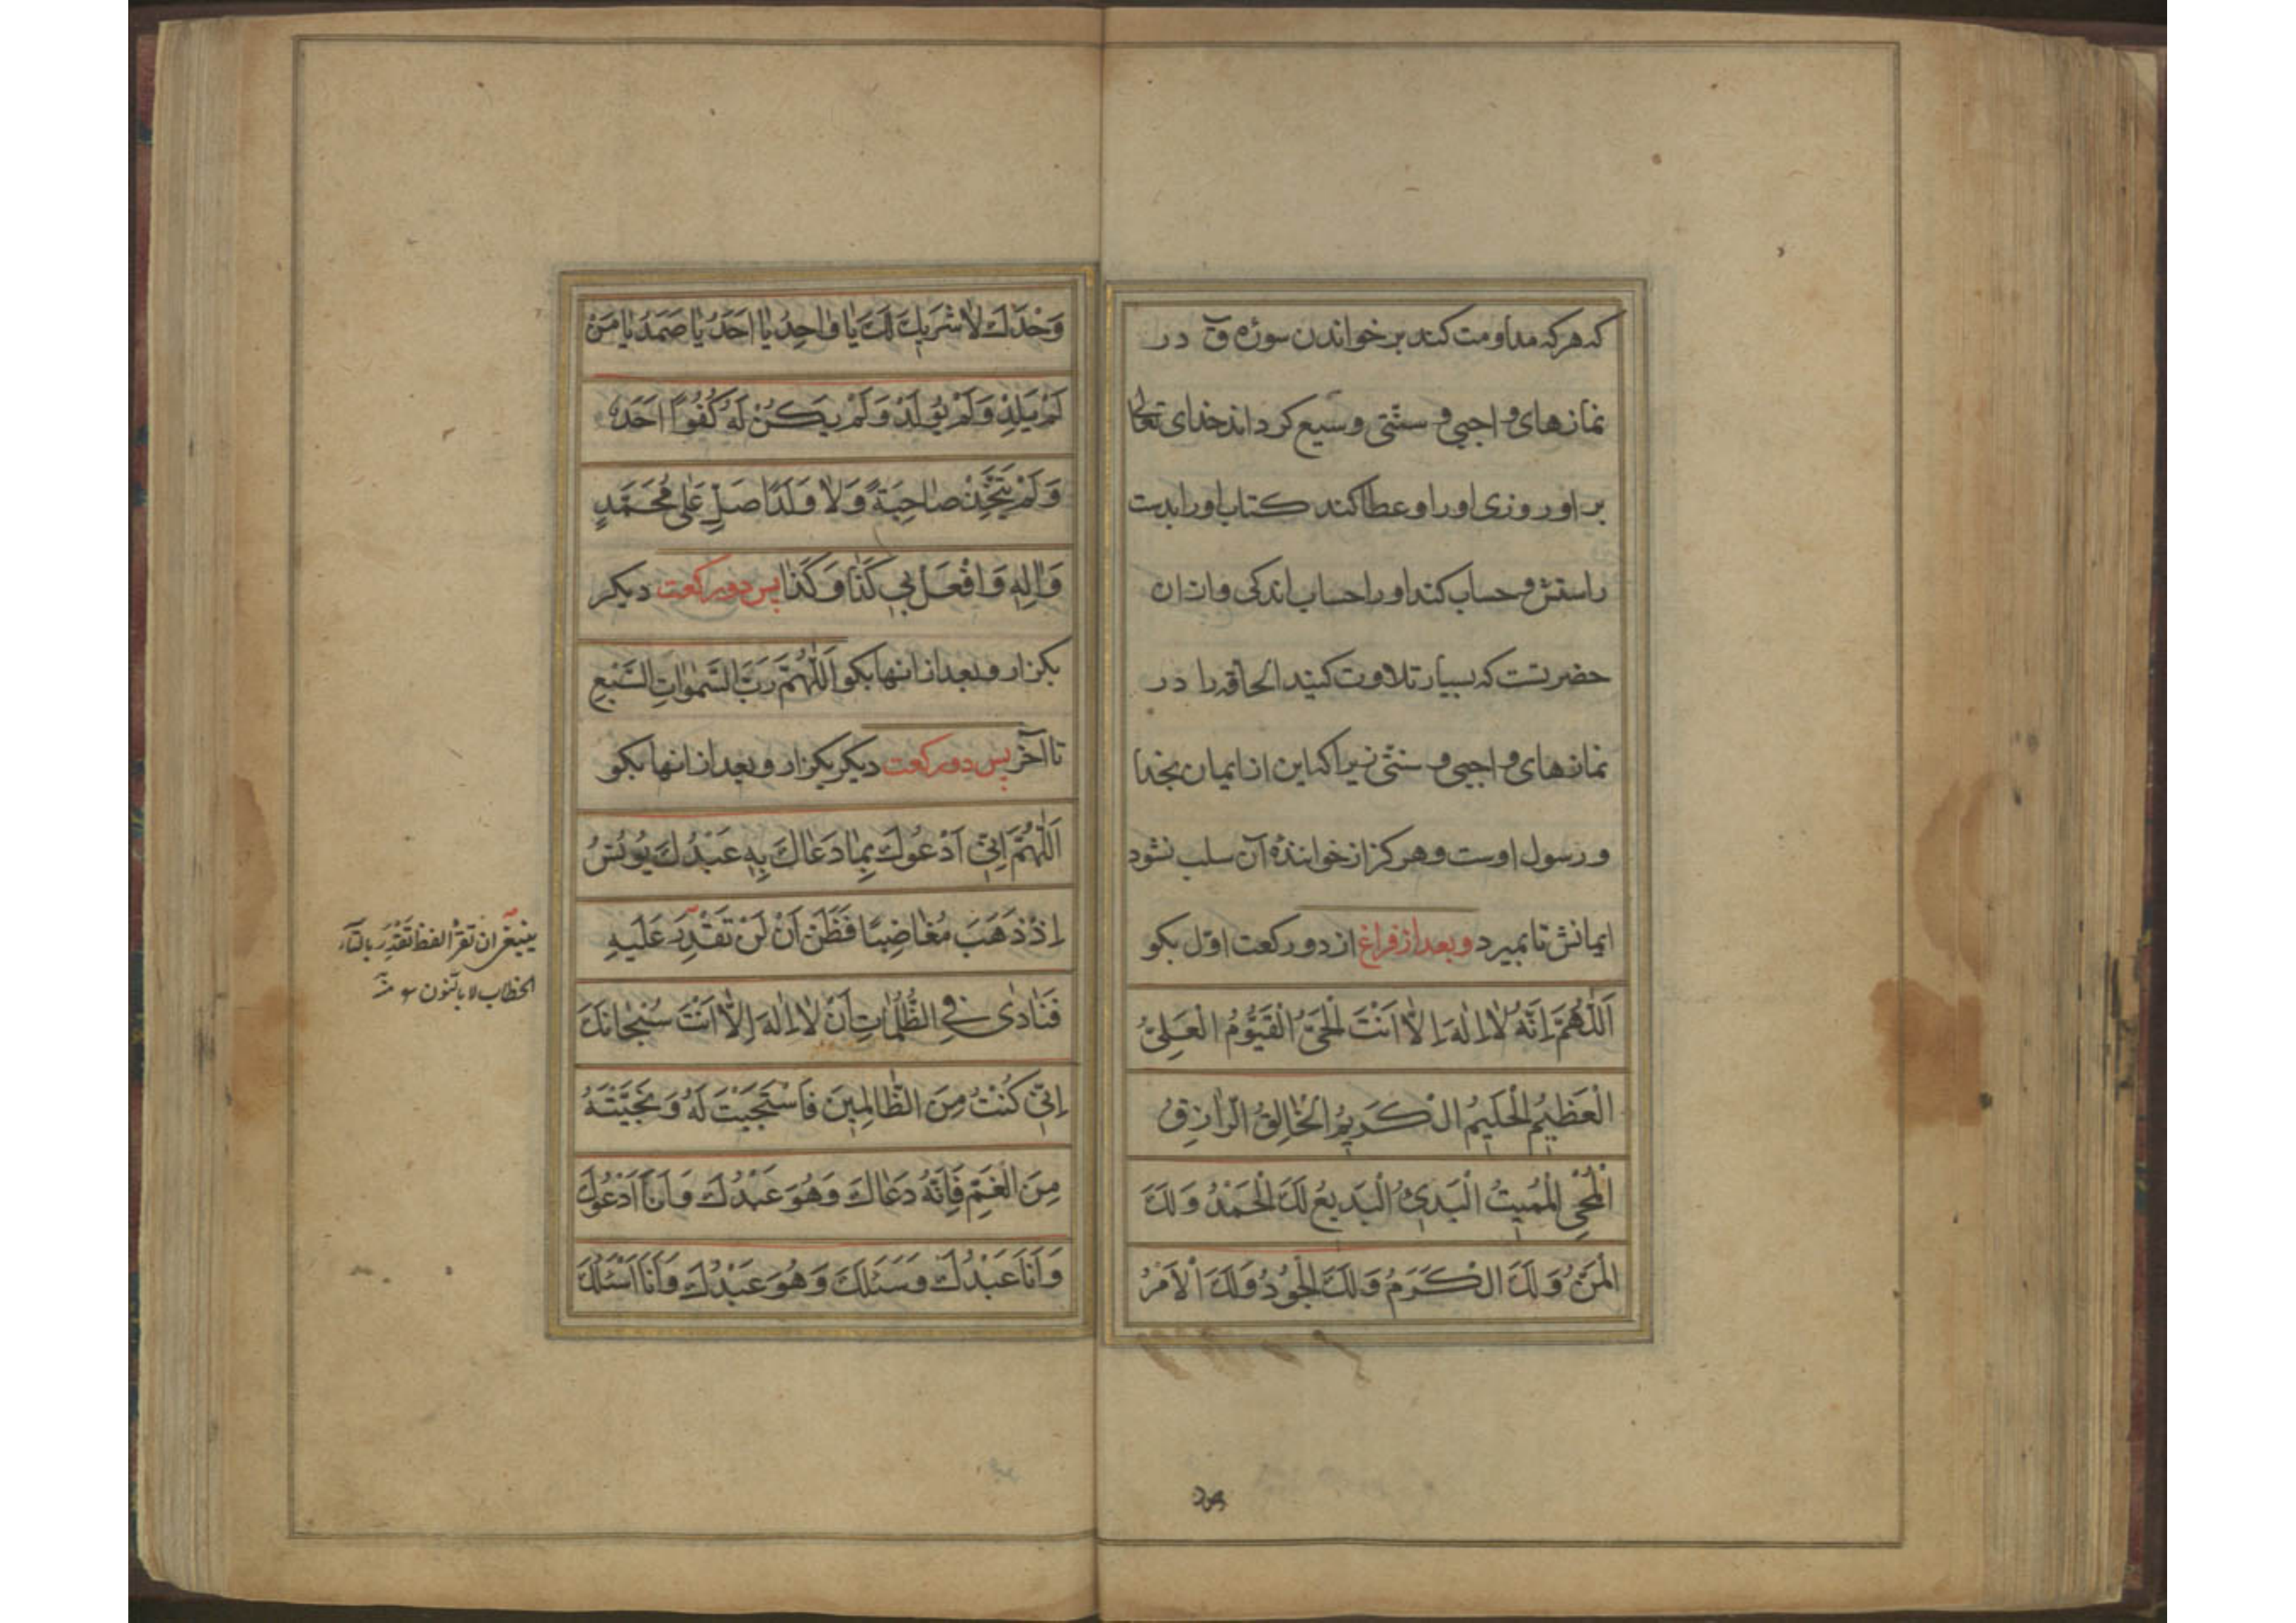 که هرکه مداومت کند بر خواندن سورۀ ق در
نمازهای واجبی و سنتی وسیع کرداند خدای تعالی
بر او روزی او را و عطا کند کتاب او را بدست
راستش و حساب کند او را حساب اندکی و از ان
حضرتست که بسیار تلاوت کنید الحاقه را در
نمازهای واجبی و سنتی زیرا که این از ایمان بخدا
و رسول اوست و هرکز از خوانندۀ آن سلب نشود
ایمانش تا بمیرد و بعد از فراغ از دو رکعت اول بکو
اَللّٰهُمَّ اِنَّهُ لاٰ اِلٰهَ اِلاّٰ اَنْتَ الْحَیُّ الْقَیُّوُمُ الْعَلِیُّ
الْعَظِیمُ الْحَلِیمُ الْکَرِیمُ الْخٰالِقُ الرّٰازِقُ
الْمُحْیِی الْمُمِیتُ الْبَدِیءُ الْبَدِیعُ لَكَ الْحَمْدُ وَلَكَ
الْمَنُّ وَلَكَ الْکَرَمُ وَلَكَ الْجُودُ وَلَكَ الْاَمْرُ
وَحْدَكَ لاٰ شَرِیكَ لَكَ یٰا وٰاحِدُ یٰا اَحَدُ یٰا صَمَدُ یٰا مَنْ
لَمْ یَلِدْ وَلَمْ یُولَدْ وَلَمْ یَکُنْ لَهُ کُفُوًا اَحَدٌ
وَلَمْ یَتَّخِذْ صٰاحِبَةً وَلاٰ وَلَدًا صَلِّ عَلٰی مُحَمَّدٍ
وَاٰلِهِ وَافْعَلْ بِی کَذٰا وَکَذٰا پس دو رکعت دیکر
بکزار و بعد از انها بکو اَللّٰهُمَّ رَبَّ السَّمٰوٰاتِ السَّبْعِ
تا آخر پس دو رکعت دیکر بکزار و بعد از انها بکو
اَللّٰهُمَّ اِنِّی اَدْعُوكَ بِمٰا دَعٰاكَ بِهِ عَبْدُكَ یُونُسُ
اِذْ ذَهَبَ مُغٰاضِبًا فَظَنَّ اَنْ لَنْ تَقْدِرَ عَلَیْهِ
فَنٰادٰی فِی الظُّلُمٰاتِ اَنْ لاٰ اِلٰهَ اِلاّٰ اَنْتَ سُبْحٰانَكَ
اِنِّی کُنْتُ مِنَ الظّٰالِمِینَ فَاسْتَجَبْتَ لَهُ وَنَجَّیْتَهُ
مِنَ الْغَمِّ فَاِنَّهُ دَعٰاكَ وَهُوَ عَبْدُكَ وَاَنَا اَدْعُوكَ
وَاَنَا عَبْدُكَ وَسَئَلَكَ وَهُوَ عَبْدُكَ وَاَنَا اَسْئَلُكَ
ینبغی ان تقرأ لفظ تقدر بالتاء
الخطاب لا بالنون